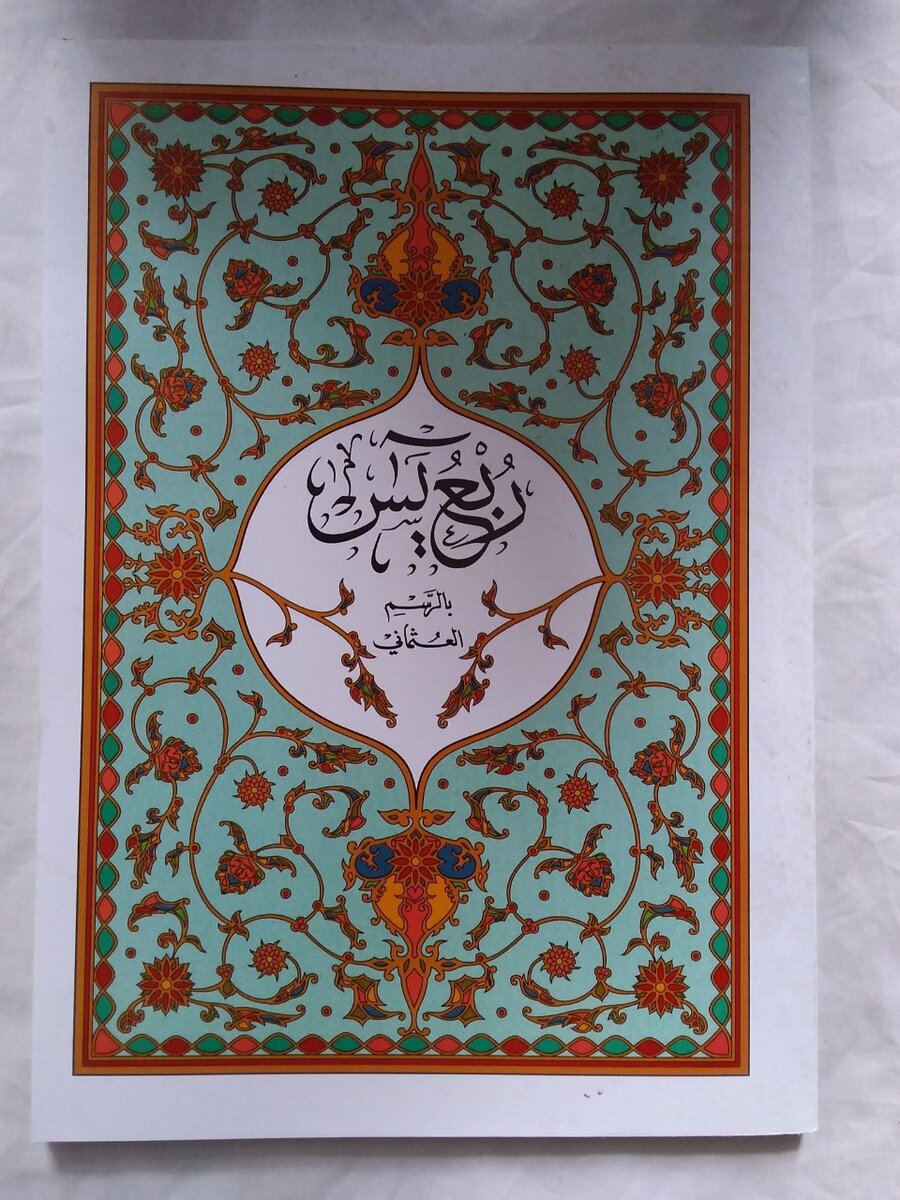 رُبْعُ يَٓس
بِالرَّسْمِ
العُثْمَانِيْ